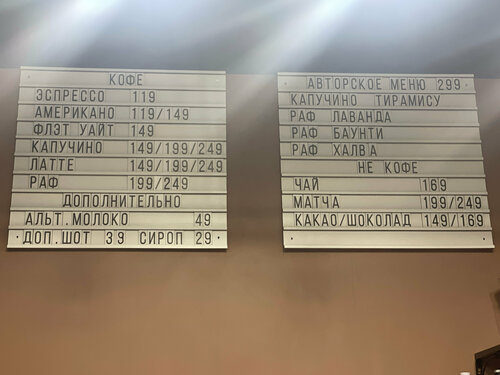 КОФЕ
ЭСПРЕССО 119
АМЕРИКАНО 119/149
ФЛЭТ УАЙТ 149
КАПУЧИНО 149/199/249
ЛАТТЕ 149/199/249
РАФ 199/249
ДОПОЛНИТЕЛЬНО
АЛЬТ.МОЛОКО 49
ДОП.ШОТ 39 СИРОП 29
АВТОРСКОЕ МЕНЮ 299
КАПУЧИНО ТИРАМИСУ
РАФ ЛАВАНДА
РАФ БАУНТИ
РАФ ХАЛВА
НЕ КОФЕ
ЧАЙ 169
МАТЧА 199/249
КАКАО/ШОКОЛАД 149/169